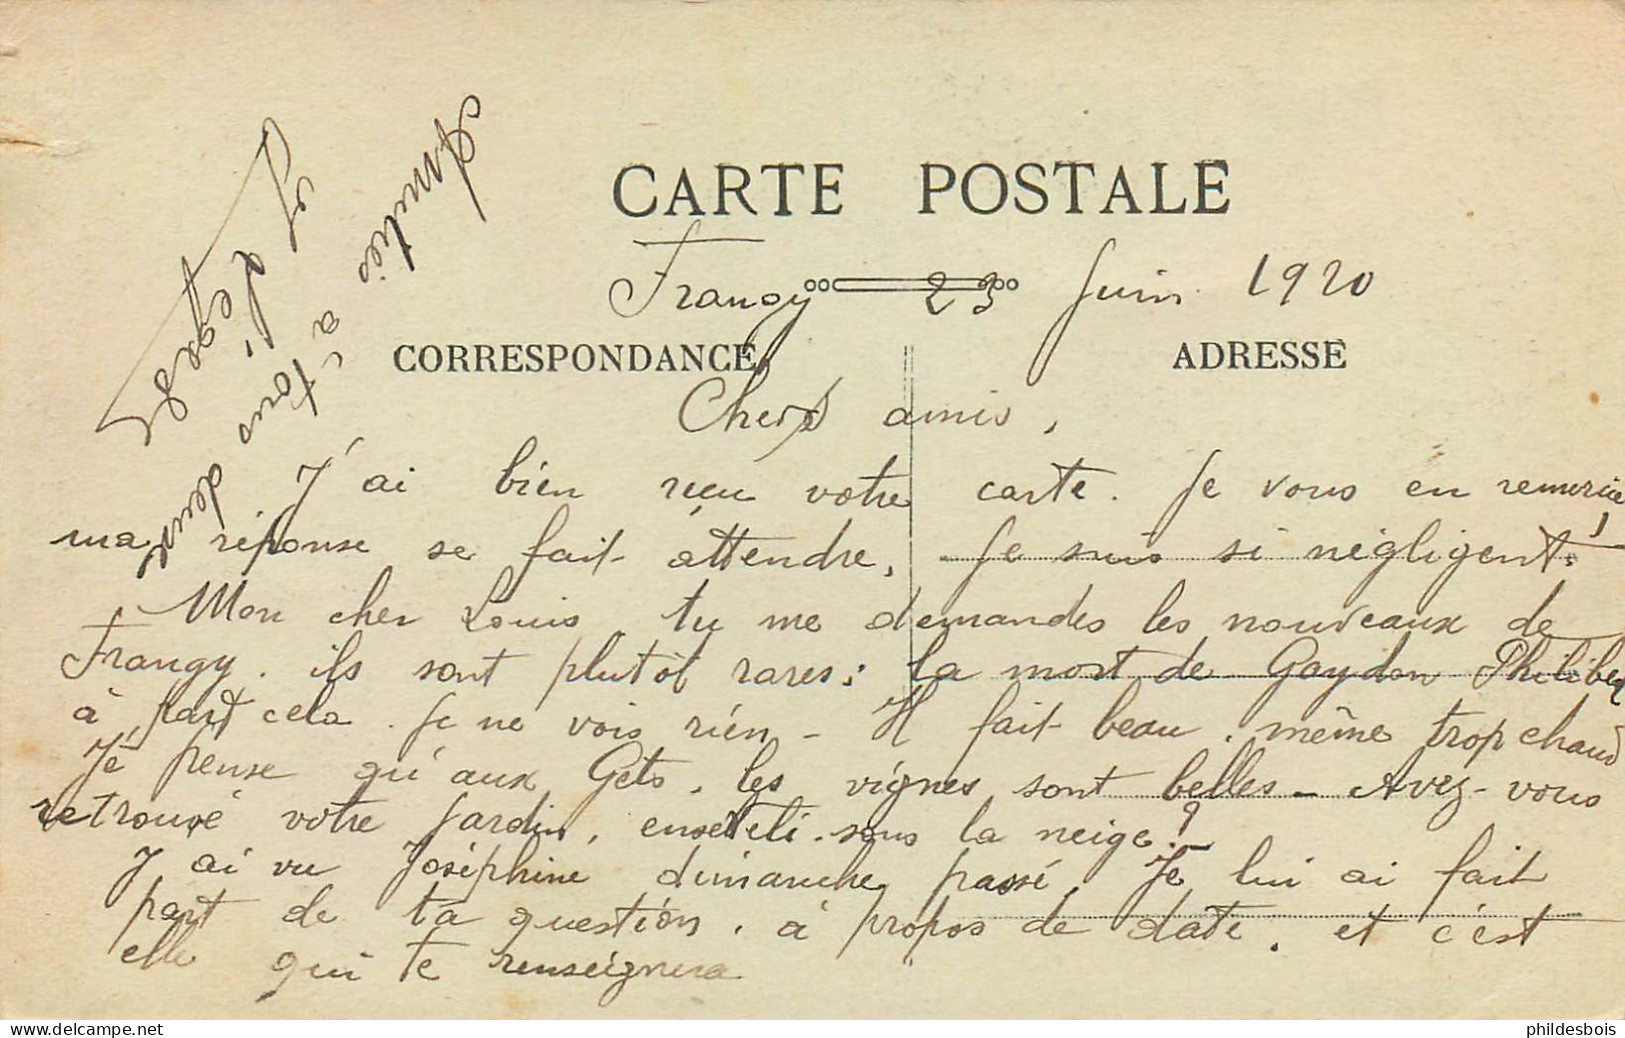 CARTE POSTALE
Frangy 23 Juin 1920
CORRESPONDANCE
ADRESSE
Chers amis,
J'ai bien reçu votre carte. Je vous en remercie
ma réponse se fait attendre, Je suis si négligent!
Mon cher Louis, tu me demandes les nouveaux de
Frangy. ils sont plutôt rares; la mort de Gaydon Philiber
à part cela. Je ne vois rien - Il fait beau, même trop chaud
Je pense qu'aux Gets, les vignes sont belles - Avez-vous
retrouvé votre jardin, enseveli sous la neige?
J'ai vu Joséphine dimanche passé, Je lui ai fait
part de ta question, à propos de date, et c'est
elle qui te renseignera
Amitiés
à tous deux
delcampe.net
phildesbois